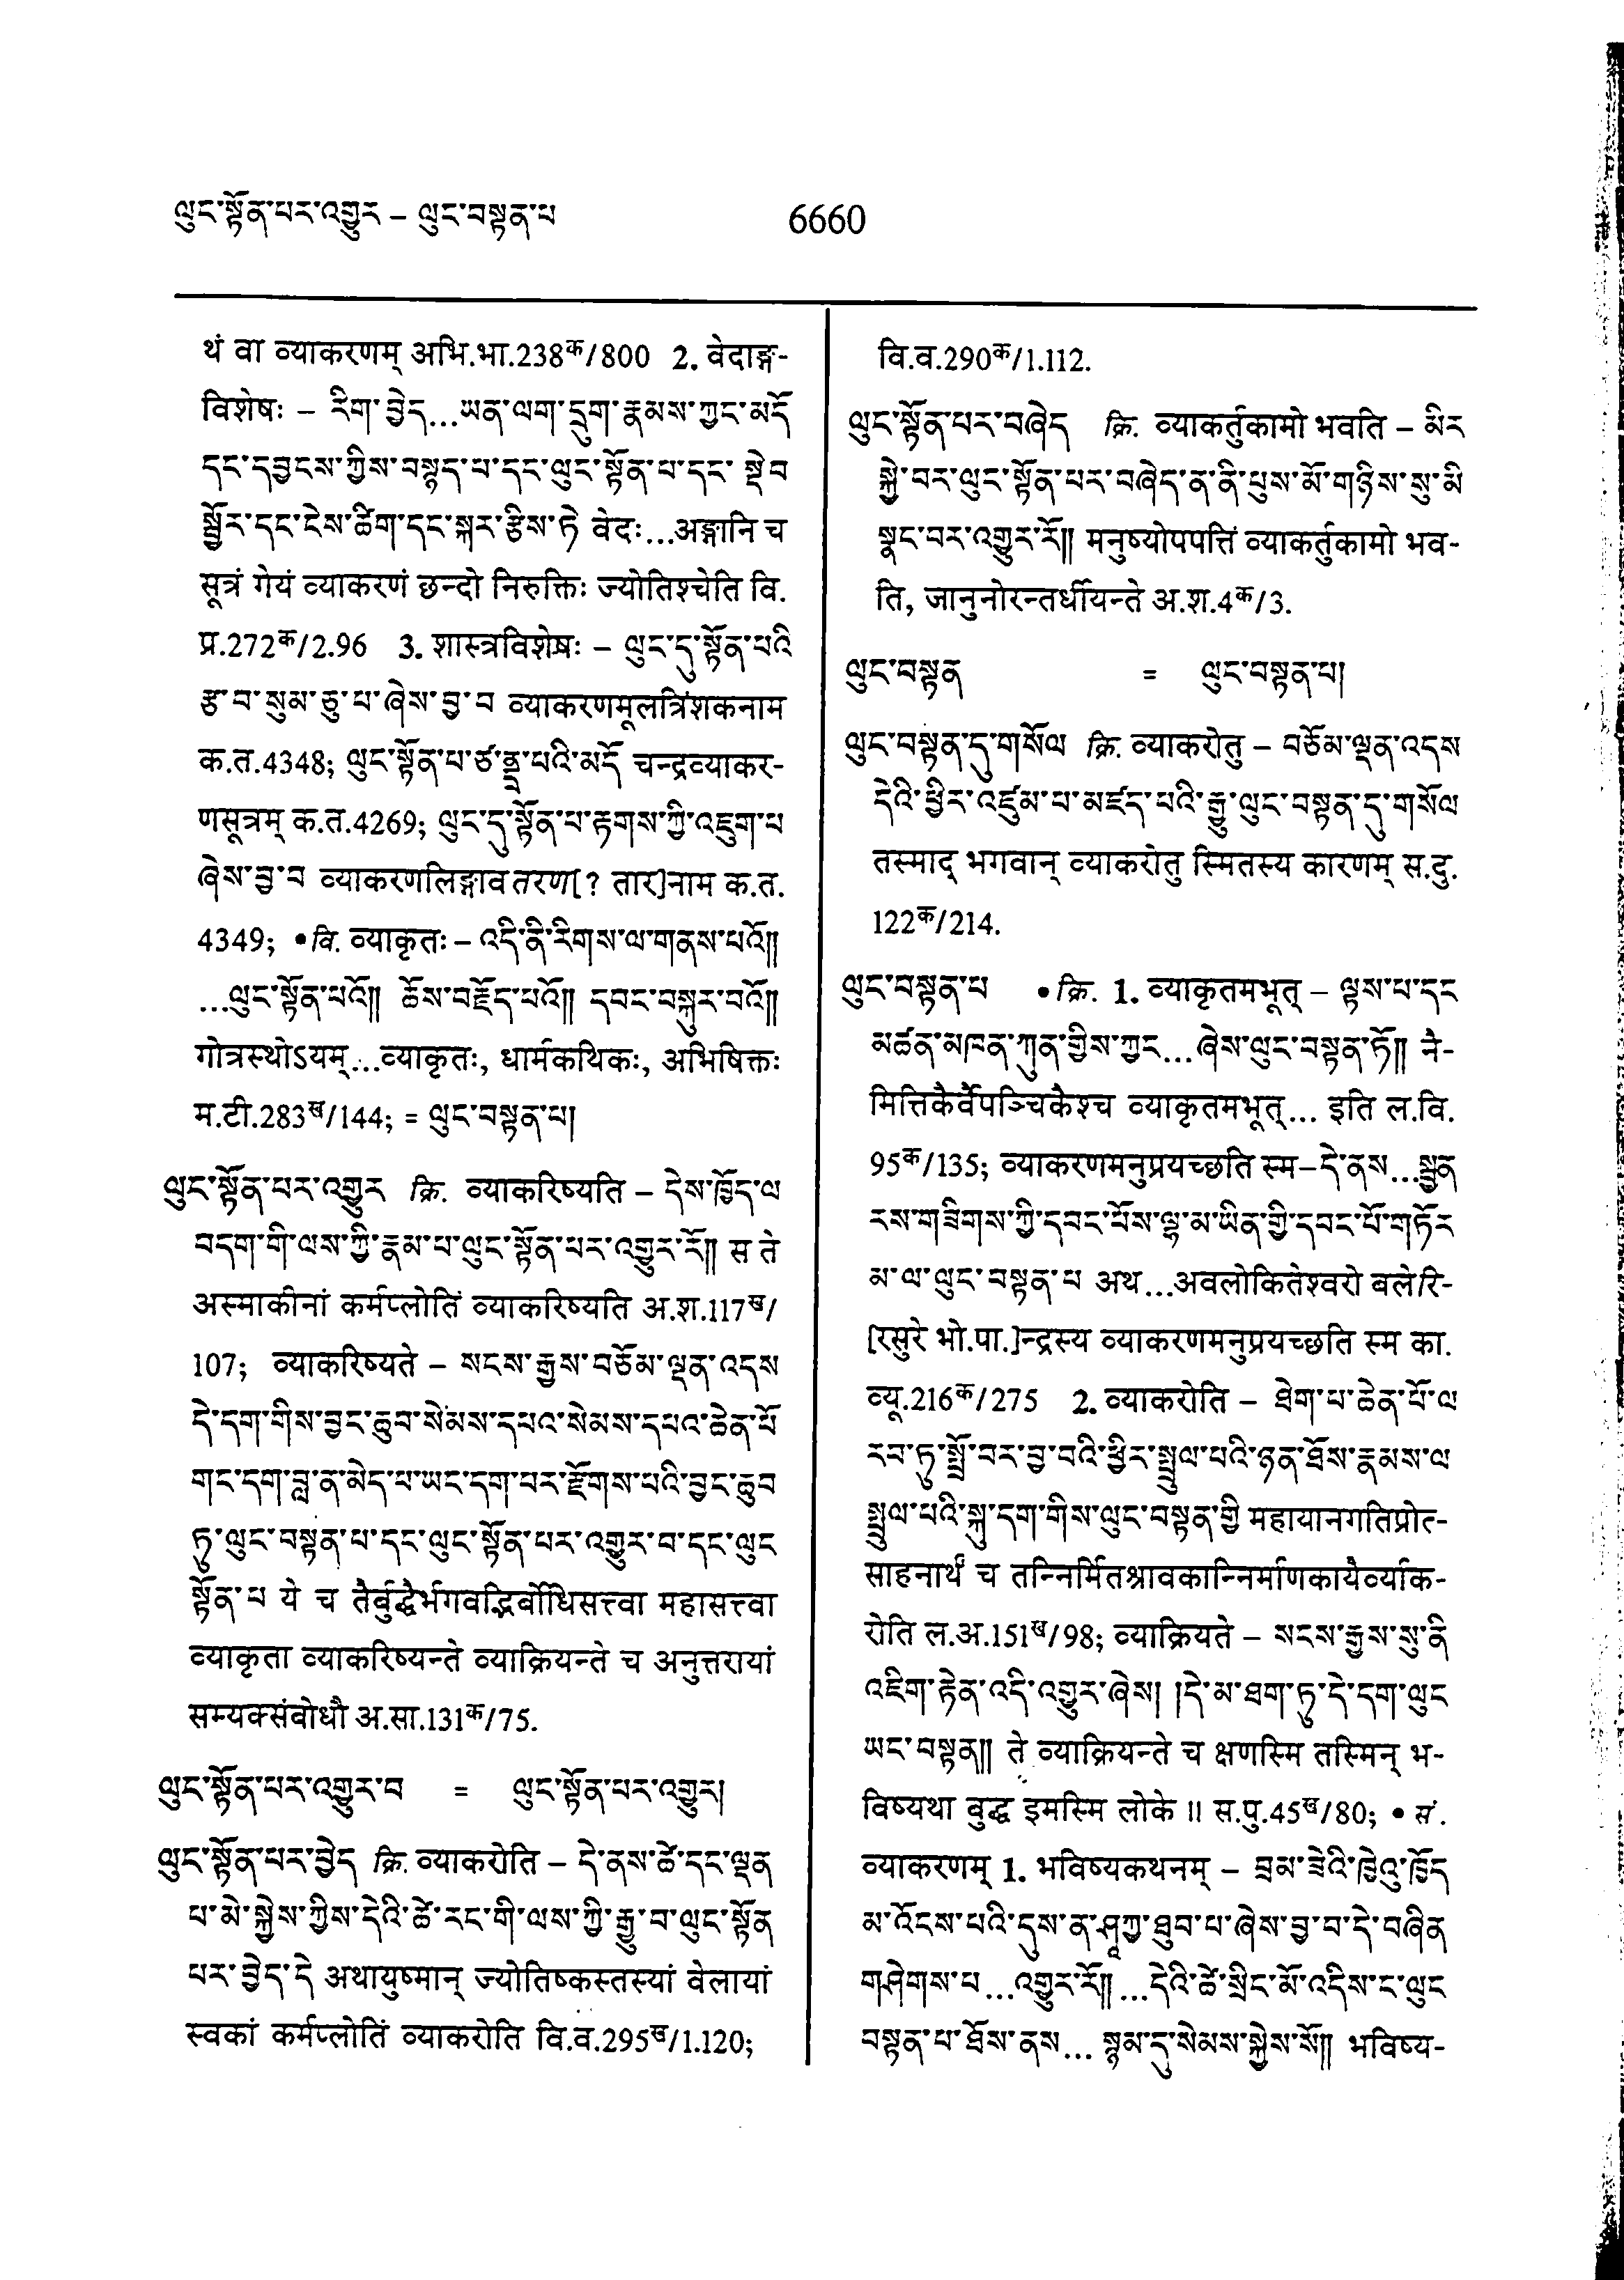 ལུང་སྟོན་པར་འགྱུར – ལུང་བསྟན་པ
6660
थं वा व्याकरणम् अभि.भा.238क/800 2. वेदाङ्ग-
विशेषः – རིག་བྱེད...ཡན་ལག་དྲུག་རྣམས་ཀྱང་མདོ
དང་དབྱངས་ཀྱིས་བསྙད་པ་དང་ལུང་སྟོན་པ་དང་ སྡེབ
སྦྱོར་དང་ངེས་ཚིག་དང་སྐར་རྩིས་ཏེ वेदः...अङ्गानि च
सूत्रं गेयं व्याकरणं छन्दो निरुक्तिः ज्योतिश्चेति वि.
प्र.272क/2.96 3. शास्त्रविशेषः – ལུང་དུ་སྟོན་པའི
རྩ་བ་སུམ་ཅུ་པ་ཞེས་བྱ་བ व्याकरणमूलत्रिंशकनाम
क.त.4348; ལུང་སྟོན་པ་ཙནྡྲ་པའི་མདོ चन्द्रव्याकर-
णसूत्रम् क.त.4269; ལུང་དུ་སྟོན་པ་རྟགས་ཀྱི་འཇུག་པ
ཞེས་བྱ་བ व्याकरणलिङ्गावतरण[? तार]नाम क.त.
4349; • वि. व्याकृतः – འདི་ནི་རིགས་ལ་གནས་པའོ༎
...ལུང་སྟོན་པའོ༎ ཆོས་བརྗོད་པའོ༎ དབང་བསྐུར་བའོ༎
गोत्रस्थोऽयम्...व्याकृतः, धार्मकथिकः, अभिषिक्तः
म.टी.283ख/144; = ལུང་བསྟན་པ།
ལུང་སྟོན་པར་འགྱུར क्रि. व्याकरिष्यति – དེས་ཁྱོད་ལ
བདག་གི་ལས་ཀྱི་རྣམ་པ་ལུང་སྟོན་པར་འགྱུར་རོ༎ स ते
अस्माकीनां कर्मप्लोतिं व्याकरिष्यति अ.श.117ख/
107; व्याकरिष्यते – སངས་རྒྱས་བཅོམ་ལྡན་འདས
དེ་དག་གིས་བྱང་ཆུབ་སེམས་དཔའ་སེམས་དཔའ་ཆེན་པོ
གང་དག་བླ་ན་མེད་པ་ཡང་དག་པར་རྫོགས་པའི་བྱང་ཆུབ
ཏུ་ལུང་བསྟན་པ་དང་ལུང་སྟོན་པར་འགྱུར་བ་དང་ལུང
སྟོན་པ ये च तैर्बुद्धैर्भगवद्भिर्बोधिसत्त्वा महासत्त्वा
व्याकृता व्याकरिष्यन्ते व्याक्रियन्ते च अनुत्तरायां
सम्यक्संबोधौ अ.सा.131क/75.
ལུང་སྟོན་པར་འགྱུར་བ = ལུང་སྟོན་པར་འགྱུར།
ལུང་སྟོན་པར་བྱེད क्रि. व्याकरोति – དེ་ནས་ཚེ་དང་ལྡན
པ་མེ་སྐྱེས་ཀྱིས་དེའི་ཚེ་རང་གི་ལས་ཀྱི་རྒྱུ་བ་ལུང་སྟོན
པར་བྱེད་དེ अथायुष्मान् ज्योतिष्कस्तस्यां वेलायां
स्वकां कर्मप्लोतिं व्याकरोति वि.व.295ख/1.120;
वि.व.290क/1.112.
ལུང་སྟོན་པར་བཞེད क्रि. व्याकर्तुकामो भवति – མིར
སྐྱེ་བར་ལུང་སྟོན་པར་བཞེད་ན་ནི་པུས་མོ་གཉིས་སུ་མི
སྣང་བར་འགྱུར་རོ༎ मनुष्योपपत्तिं व्याकर्तुकामो भव-
ति, जानुनोरन्तर्धीयन्ते अ.श.4क/3.
ལུང་བསྟན = ལུང་བསྟན་པ།
ལུང་བསྟན་དུ་གསོལ क्रि. व्याकरोतु – བཅོམ་ལྡན་འདས
དེའི་ཕྱིར་འཛུམ་པ་མཛད་པའི་རྒྱུ་ལུང་བསྟན་དུ་གསོལ
तस्माद् भगवान् व्याकरोतु स्मितस्य कारणम् स.दु.
122क/214.
ལུང་བསྟན་པ • क्रि. 1. व्याकृतमभूत् – ལྟས་པ་དང
མཚན་མཁན་ཀུན་གྱིས་ཀྱང...ཞེས་ལུང་བསྟན་ཏོ༎ नै-
मित्तिकैर्वैपञ्चिकैश्च व्याकृतमभूत्... इति ल.वि.
95क/135; व्याकरणमनुप्रयच्छति स्म–དེ་ནས...སྤྱན
རས་གཟིགས་ཀྱི་དབང་པོས་ལྷ་མ་ཡིན་གྱི་དབང་པོ་གཏོར
མ་ལ་ལུང་བསྟན་པ अथ...अवलोकितेश्वरो बलेरि-
[रसुरे भो.पा.]न्द्रस्य व्याकरणमनुप्रयच्छति स्म का.
व्यू.216क/275 2. व्याकरोति – ཐེག་པ་ཆེན་པོ་ལ
རབ་ཏུ་སྤྲོ་བར་བྱ་བའི་ཕྱིར་སྤྲུལ་པའི་ཉན་ཐོས་རྣམས་ལ
སྤྲུལ་པའི་སྐུ་དག་གིས་ལུང་བསྟན་གྱི महायानगतिप्रोत्-
साहनार्थं च तन्निर्मितश्रावकान्निर्माणकायैर्व्याक-
रोति ल.अ.151ख/98; व्याक्रियते – སངས་རྒྱས་སུ་ནི
འཇིག་རྟེན་འདི་འགྱུར་ཞེས། །དེ་མ་ཐག་ཏུ་དེ་དག་ལུང
ཡང་བསྟན༎ ते व्याक्रियन्ते च क्षणस्मि तस्मिन् भ-
विष्यथा बुद्ध इमस्मि लोके ॥ स.पु.45ख/80; • सं.
व्याकरणम् 1. भविष्यकथनम् – བྲམ་ཟེའི་ཁྱེའུ་ཁྱོད
མ་འོངས་པའི་དུས་ན་ཤཱཀྱ་ཐུབ་པ་ཞེས་བྱ་བ་དེ་བཞིན
གཤེགས་པ...འགྱུར་རོ༎...དེའི་ཚེ་སྲིང་མོ་འདིས་ང་ལུང
བསྟན་པ་ཐོས་ནས... སྙམ་དུ་སེམས་སྐྱེས་སོ༎ भविष्य-